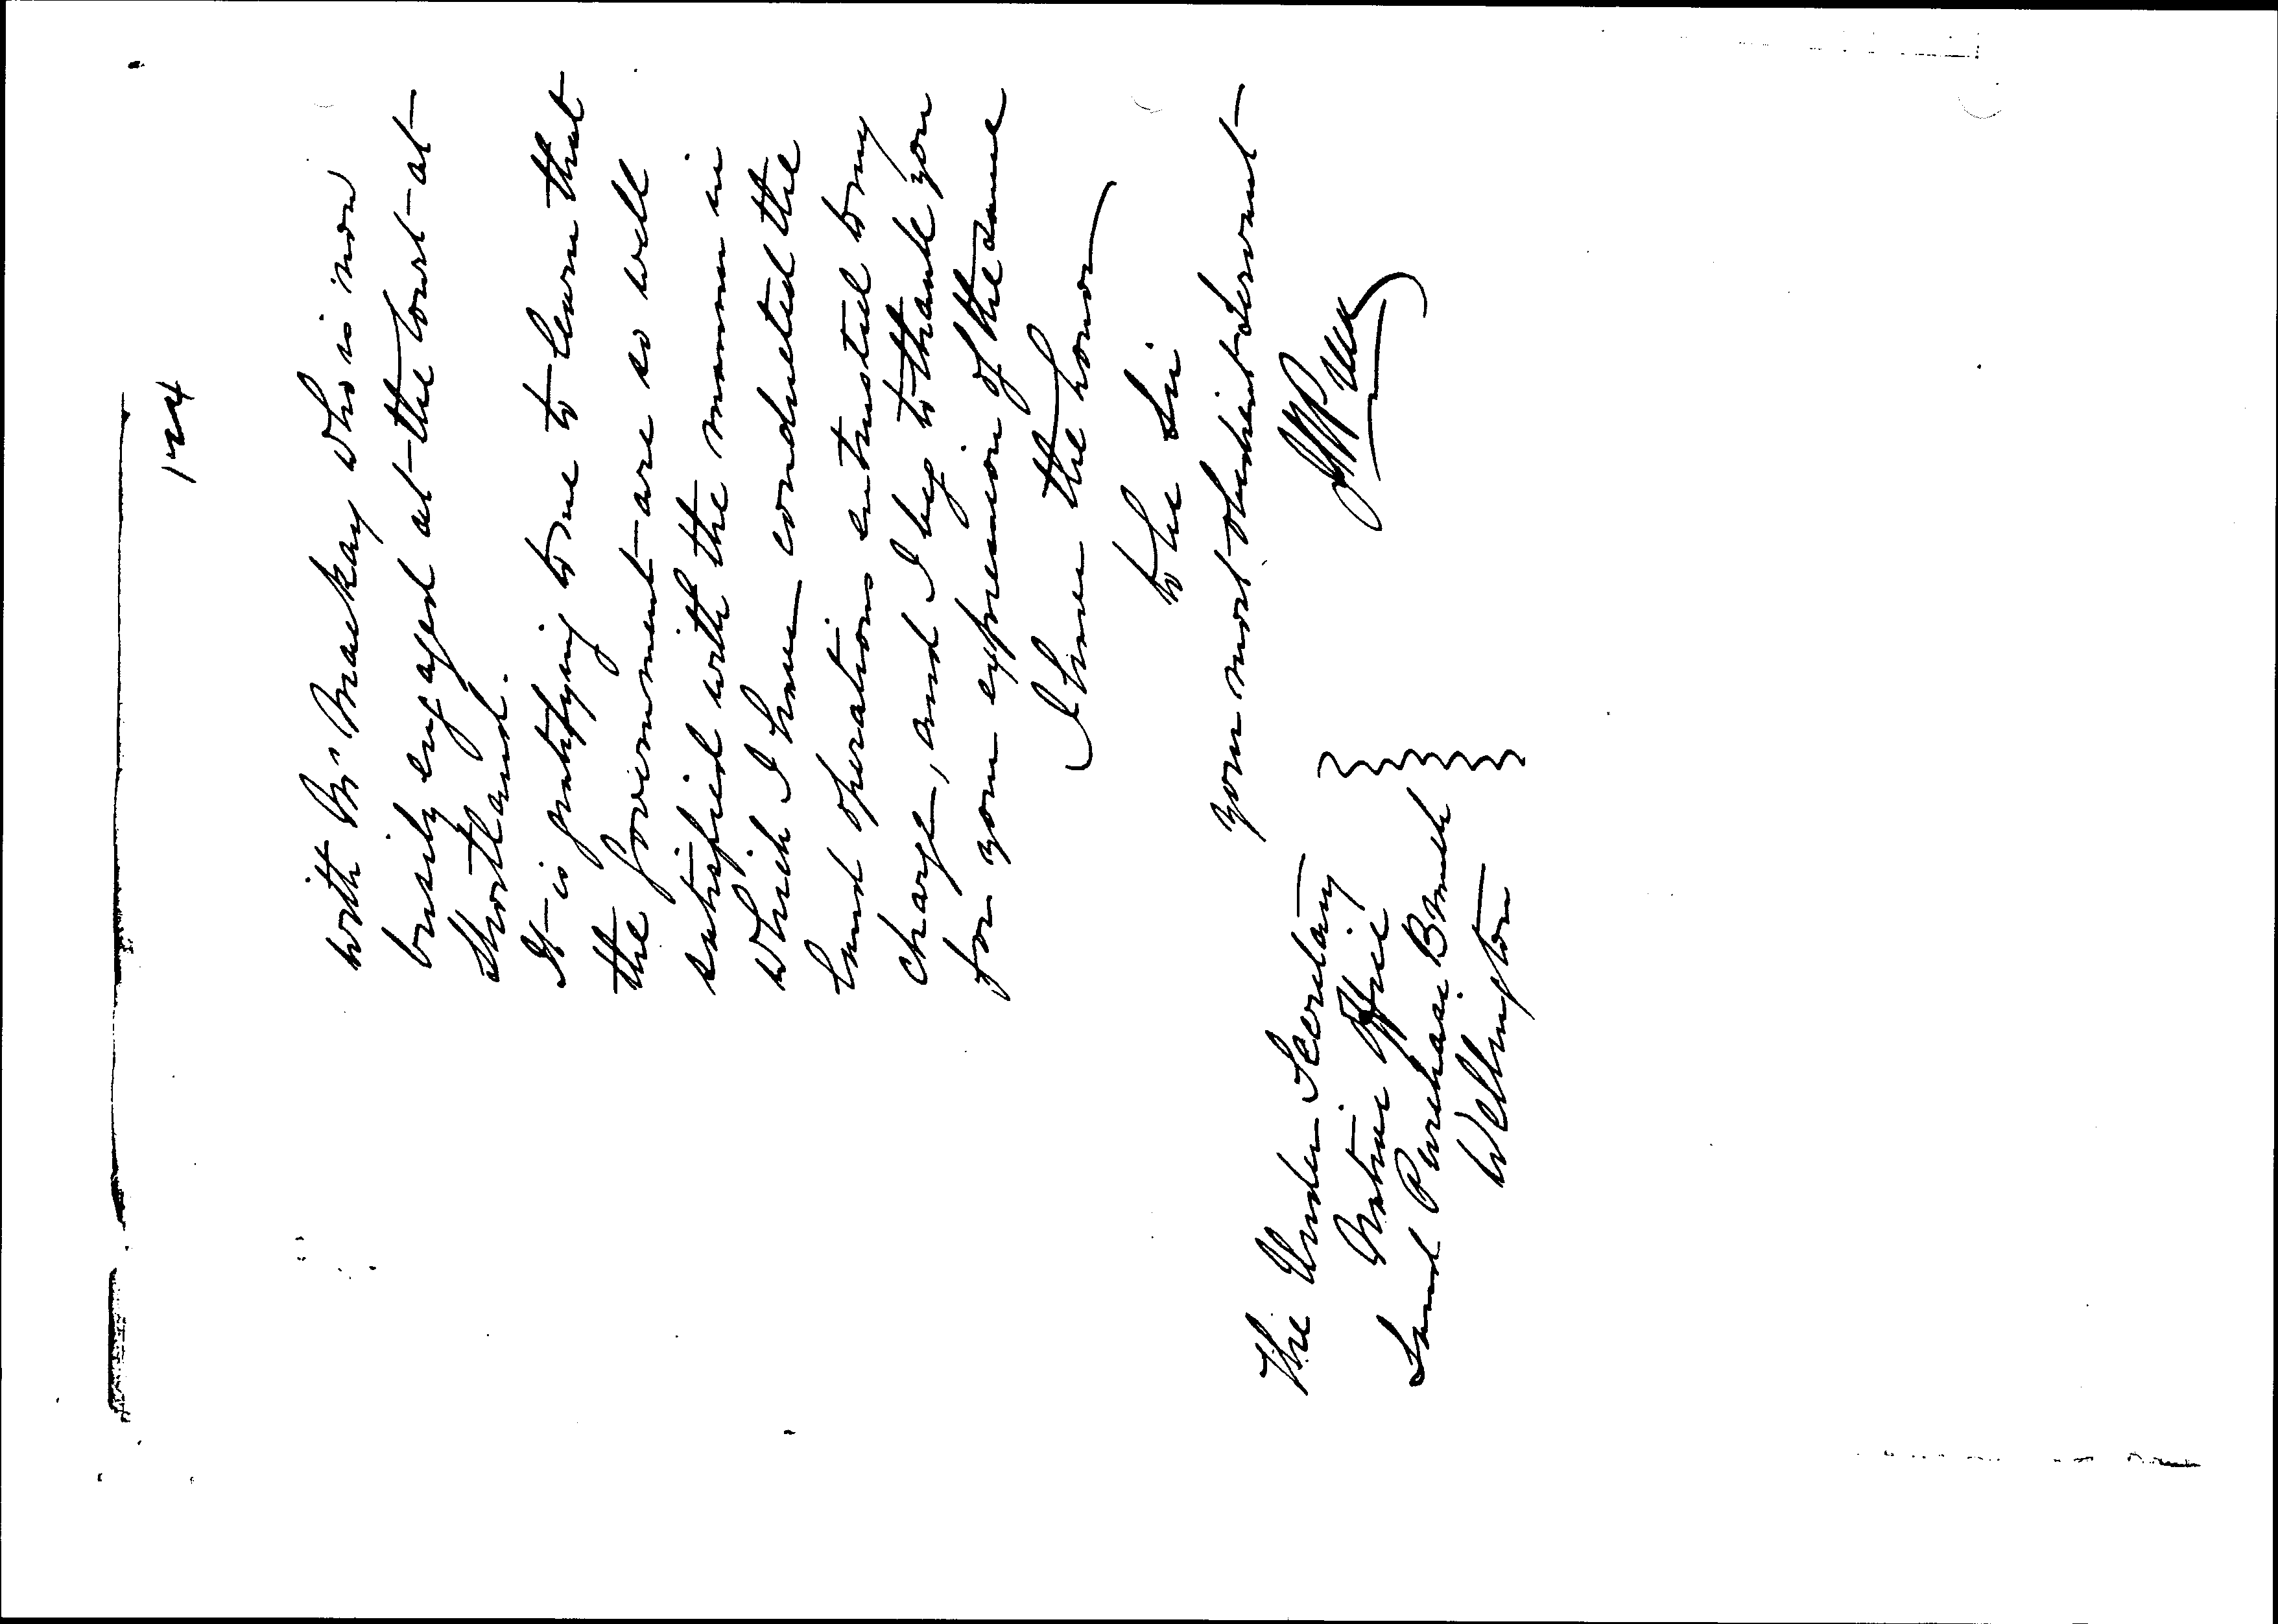 124
with Mr Mackay who is now
busily engaged at the Court at
Shortland.
It is gratifying to me to learn that
the Government are so well
satisfied with the manner in
which I have conducted the
land operations entrusted to my
charge, and I beg to thank you
for your expression of the same
I have the honor
to be Sir
your most obedient servant
The Under Secretary
Native Office
Land Purchase Branch
Wellington